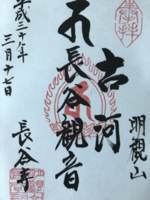 明観山
古河
長谷観音
平成三十年
三月十七日
長谷寺